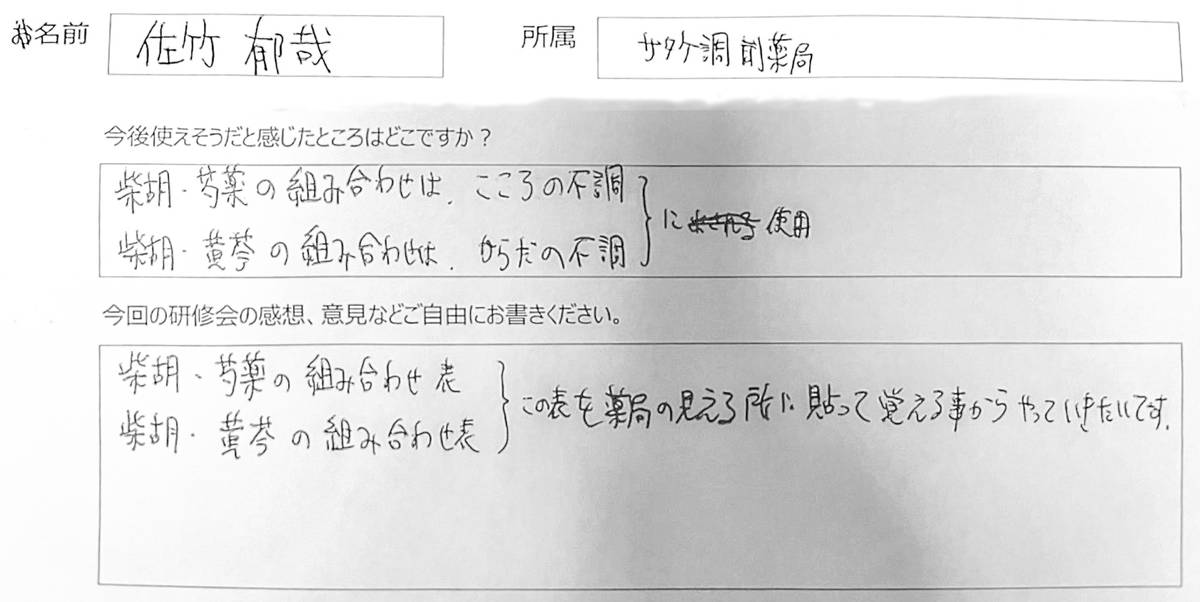 お名前 佐竹 郁哉 所属 サタケ調剤薬局
今後使えそうだと感じたところはどこですか？
柴胡・芍薬の組み合わせは、こころの不調
柴胡・黄芩の組み合わせは、からだの不調
に 使用
今回の研修会の感想、意見などご自由にお書きください。
柴胡・芍薬の組み合わせ表
柴胡・黄芩の組み合わせ表
この表を薬局の見える所に貼って覚える事からやっていきたいです。